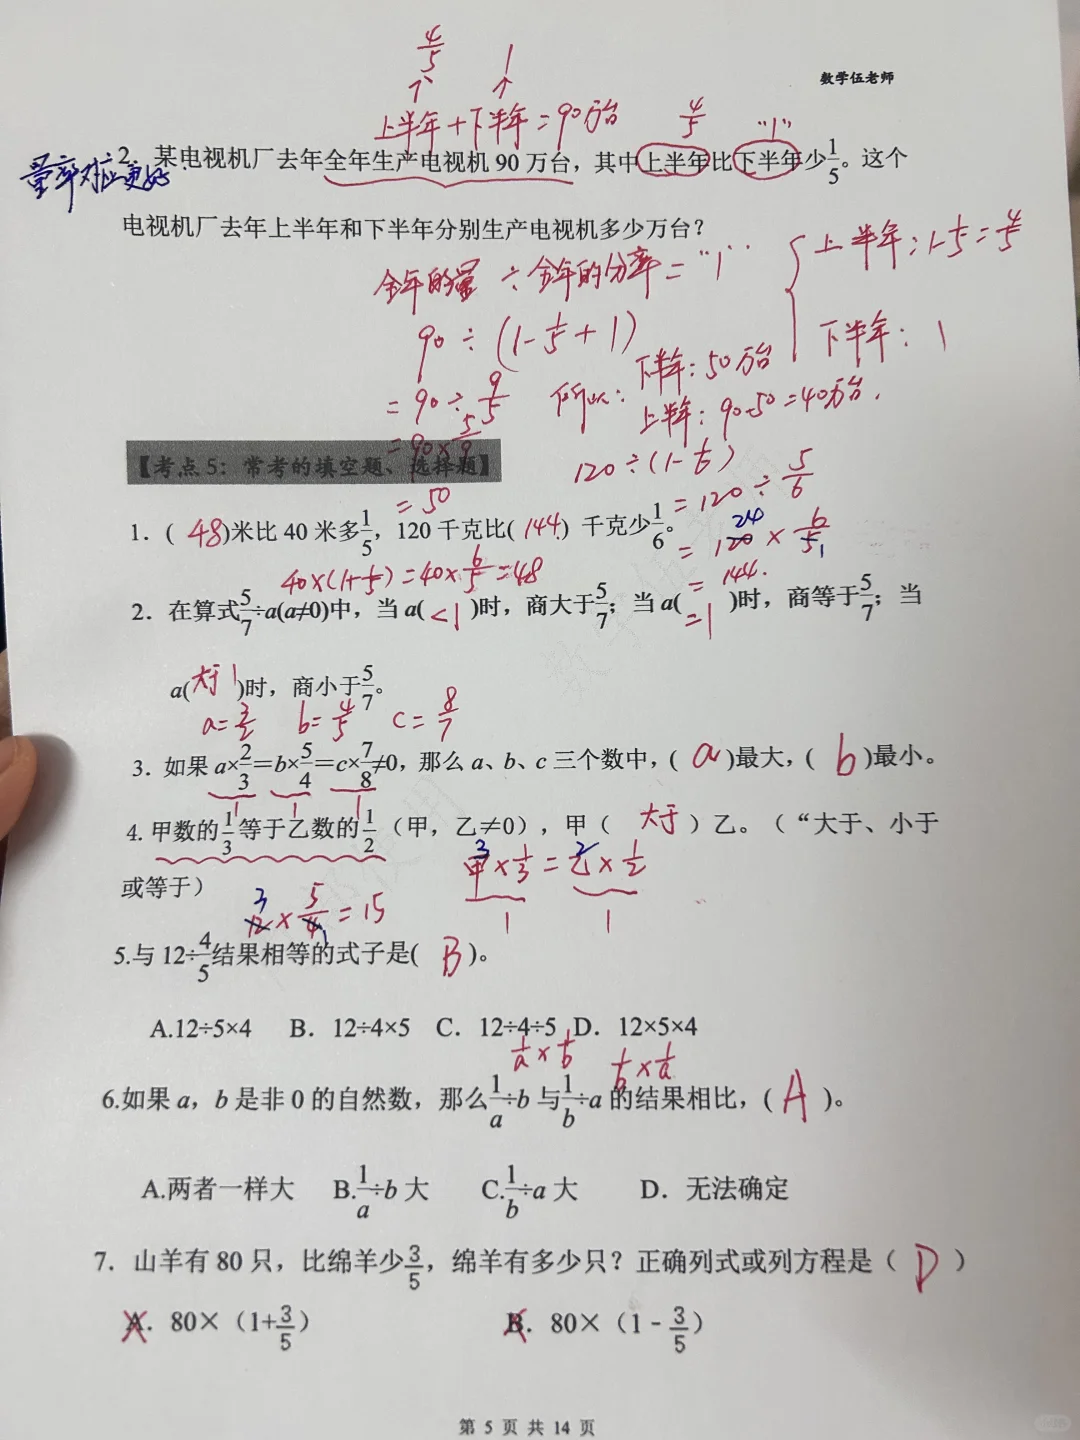 4/5 1
↑ ↑
数学伍老师
上半年+下半年=90万台 4/5 "1"
量率对应更好
2. 某电视机厂去年全年生产电视机 90 万台，其中上半年比下半年少1/5。这个
电视机厂去年上半年和下半年分别生产电视机多少万台？
全年的量 ÷ 全年的分率 = "1"
上半年：1-1/5=4/5
下半年：1
90÷(1-1/5+1)
=90÷9/5
=90×5/9
=50
所以：下半年：50万台
上半年：90-50=40万台.
【考点 5：常考的填空题、选择题】
120÷(1-1/6)
=120÷5/6
24
=120×6/5 1
=144.
1. ( 48 )米比 40 米多1/5，120 千克比( 144. ) 千克少1/6。
40×(1+1/5)=40×6/5=48
2. 在算式5/7÷a(a≠0)中，当 a( <1 )时，商大于5/7；当 a( =1 )时，商等于5/7；当
a( 大于1 )时，商小于5/7。
a=3/2 b=4/5 c=8/7
3. 如果 a×2/3=b×5/4=c×7/8≠0，那么 a、b、c 三个数中，( a )最大，( b )最小。
1 1 1
4. 甲数的1/3等于乙数的1/2（甲，乙≠0），甲（ 大于 ）乙。（“大于、小于
或等于）
3 2
甲×1/3=乙×1/2
1 1
3
12×5/4=15
1
5.与 12÷4/5结果相等的式子是( B )。
A.12÷5×4 B. 12÷4×5 C. 12÷4÷5 D. 12×5×4
1/a×1/b 1/b×1/a
6.如果 a，b 是非 0 的自然数，那么1/a÷b 与1/b÷a 的结果相比，( A )。
A.两者一样大 B.1/a÷b 大 C.1/b÷a 大 D. 无法确定
7. 山羊有 80 只，比绵羊少3/5，绵羊有多少只？正确列式或列方程是（ D ）
A. 80×（1+3/5） B. 80×（1-3/5）
第 5 页 共 14 页